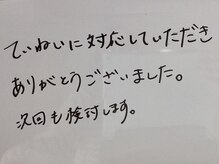 ていねいに対応していただき
ありがとうございました。
次回も検討します。